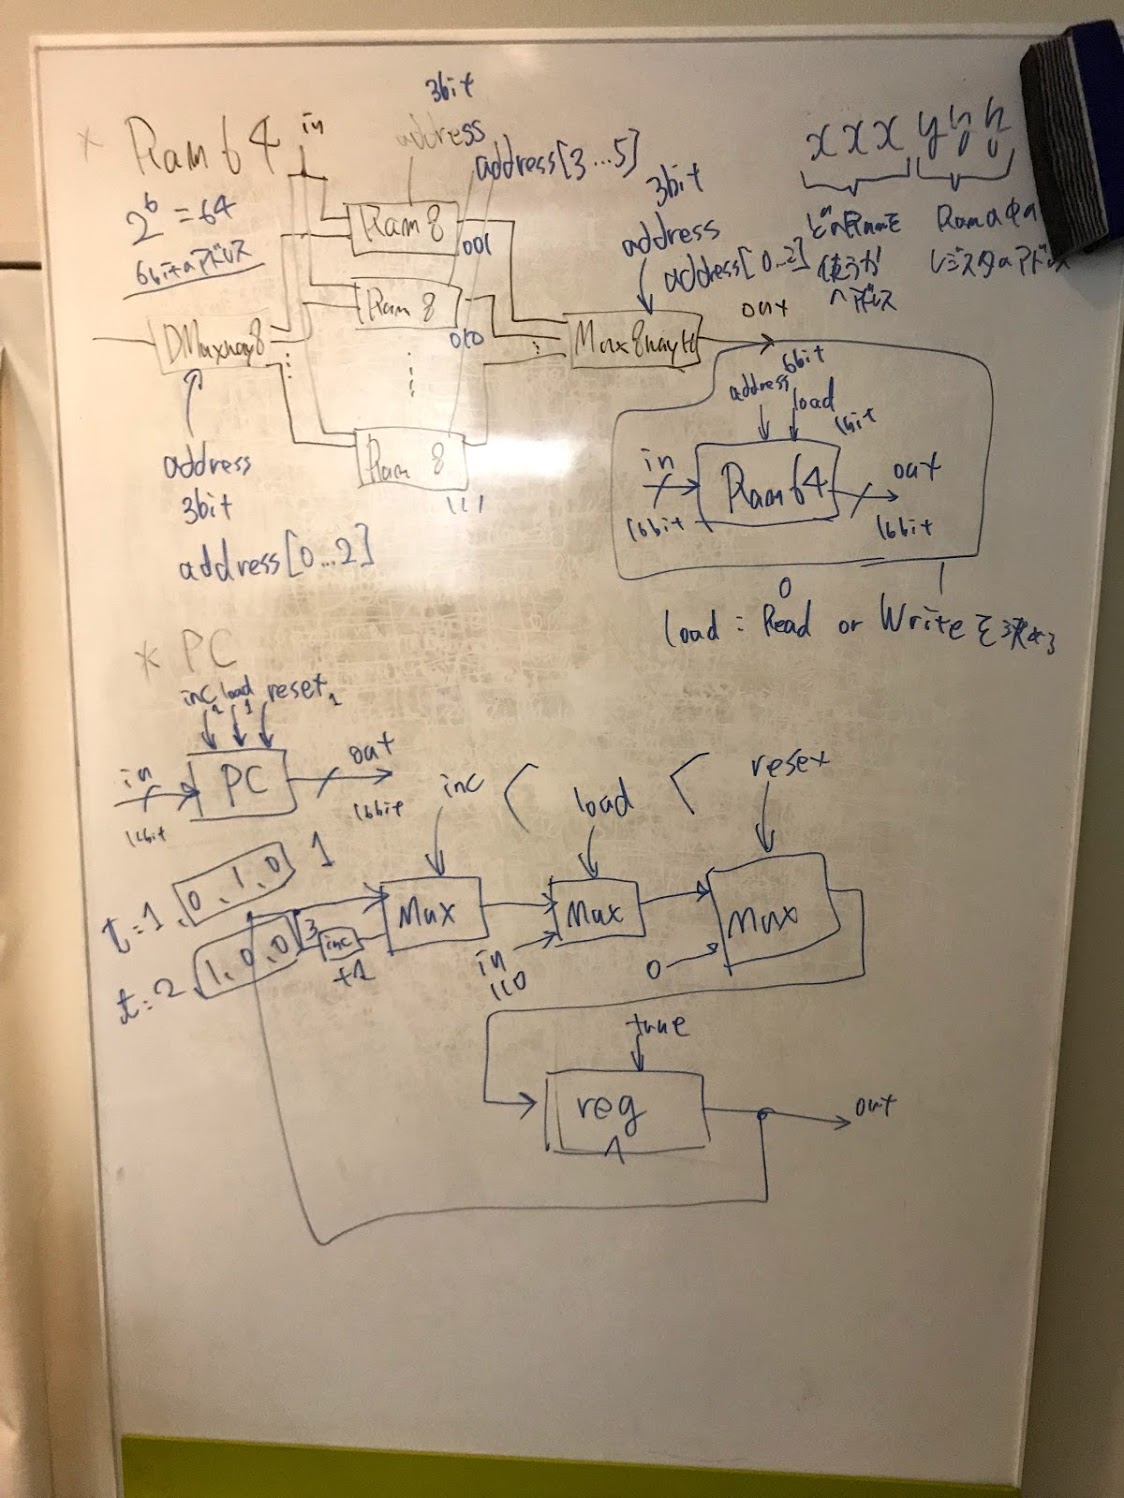 * Ram 64
in
3bit
address
address[3...5]
2^6 = 64
6bitのアドレス
Ram 8
001
Ram 8
010
Ram 8
111
DMuxway8
address
3bit
address[0...2]
3bit
address
address[0...2]
Mux8way16
out
x x x y y y
どのRamを
使うか
アドレス
Ramの中の
レジスタのアドレス
address 6bit
load
1bit
in
16bit
Ram 64
out
16bit
0 1
load : Read or Write を決める
* PC
inc load reset
in
16bit
PC
out
16bit
inc < load < reset
t=1, 0, 1, 0 1
t=2, 1, 0, 0 3
inc
+1
Mux
Mux
Mux
in
110
0
true
reg
out